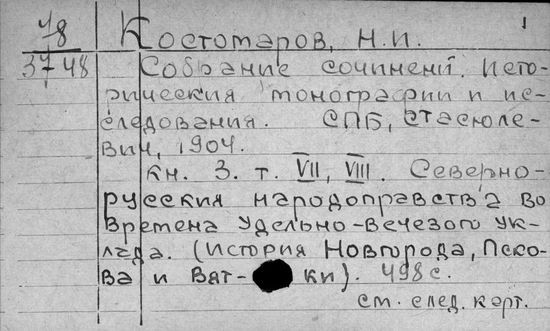 1
Ч/8
3748
Костомаров, Н.И.
Собрание сочинений. Исто-
рическия монографии и ис-
следования. СПБ, Стасюле-
вич, 1904.
кн. 3. т. VII, VIII. Северно-
русския народоправства во
времена удельно-вечевого ук-
лада. (История Новгорода, Пско-
ва и Вят-ки). 498 с.
см. след. карт.